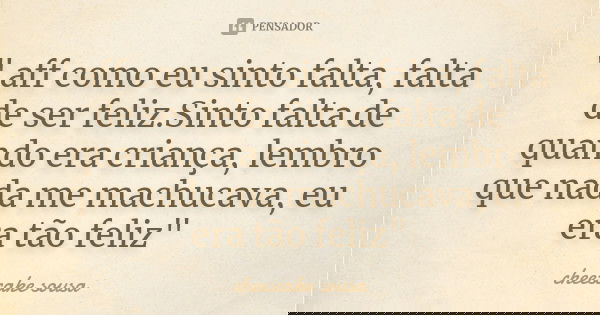 PENSADOR
"aff como eu sinto falta, falta
de ser feliz.Sinto falta de
quando era criança, lembro
que nada me machucava, eu
era tão feliz"
cheescake sousa